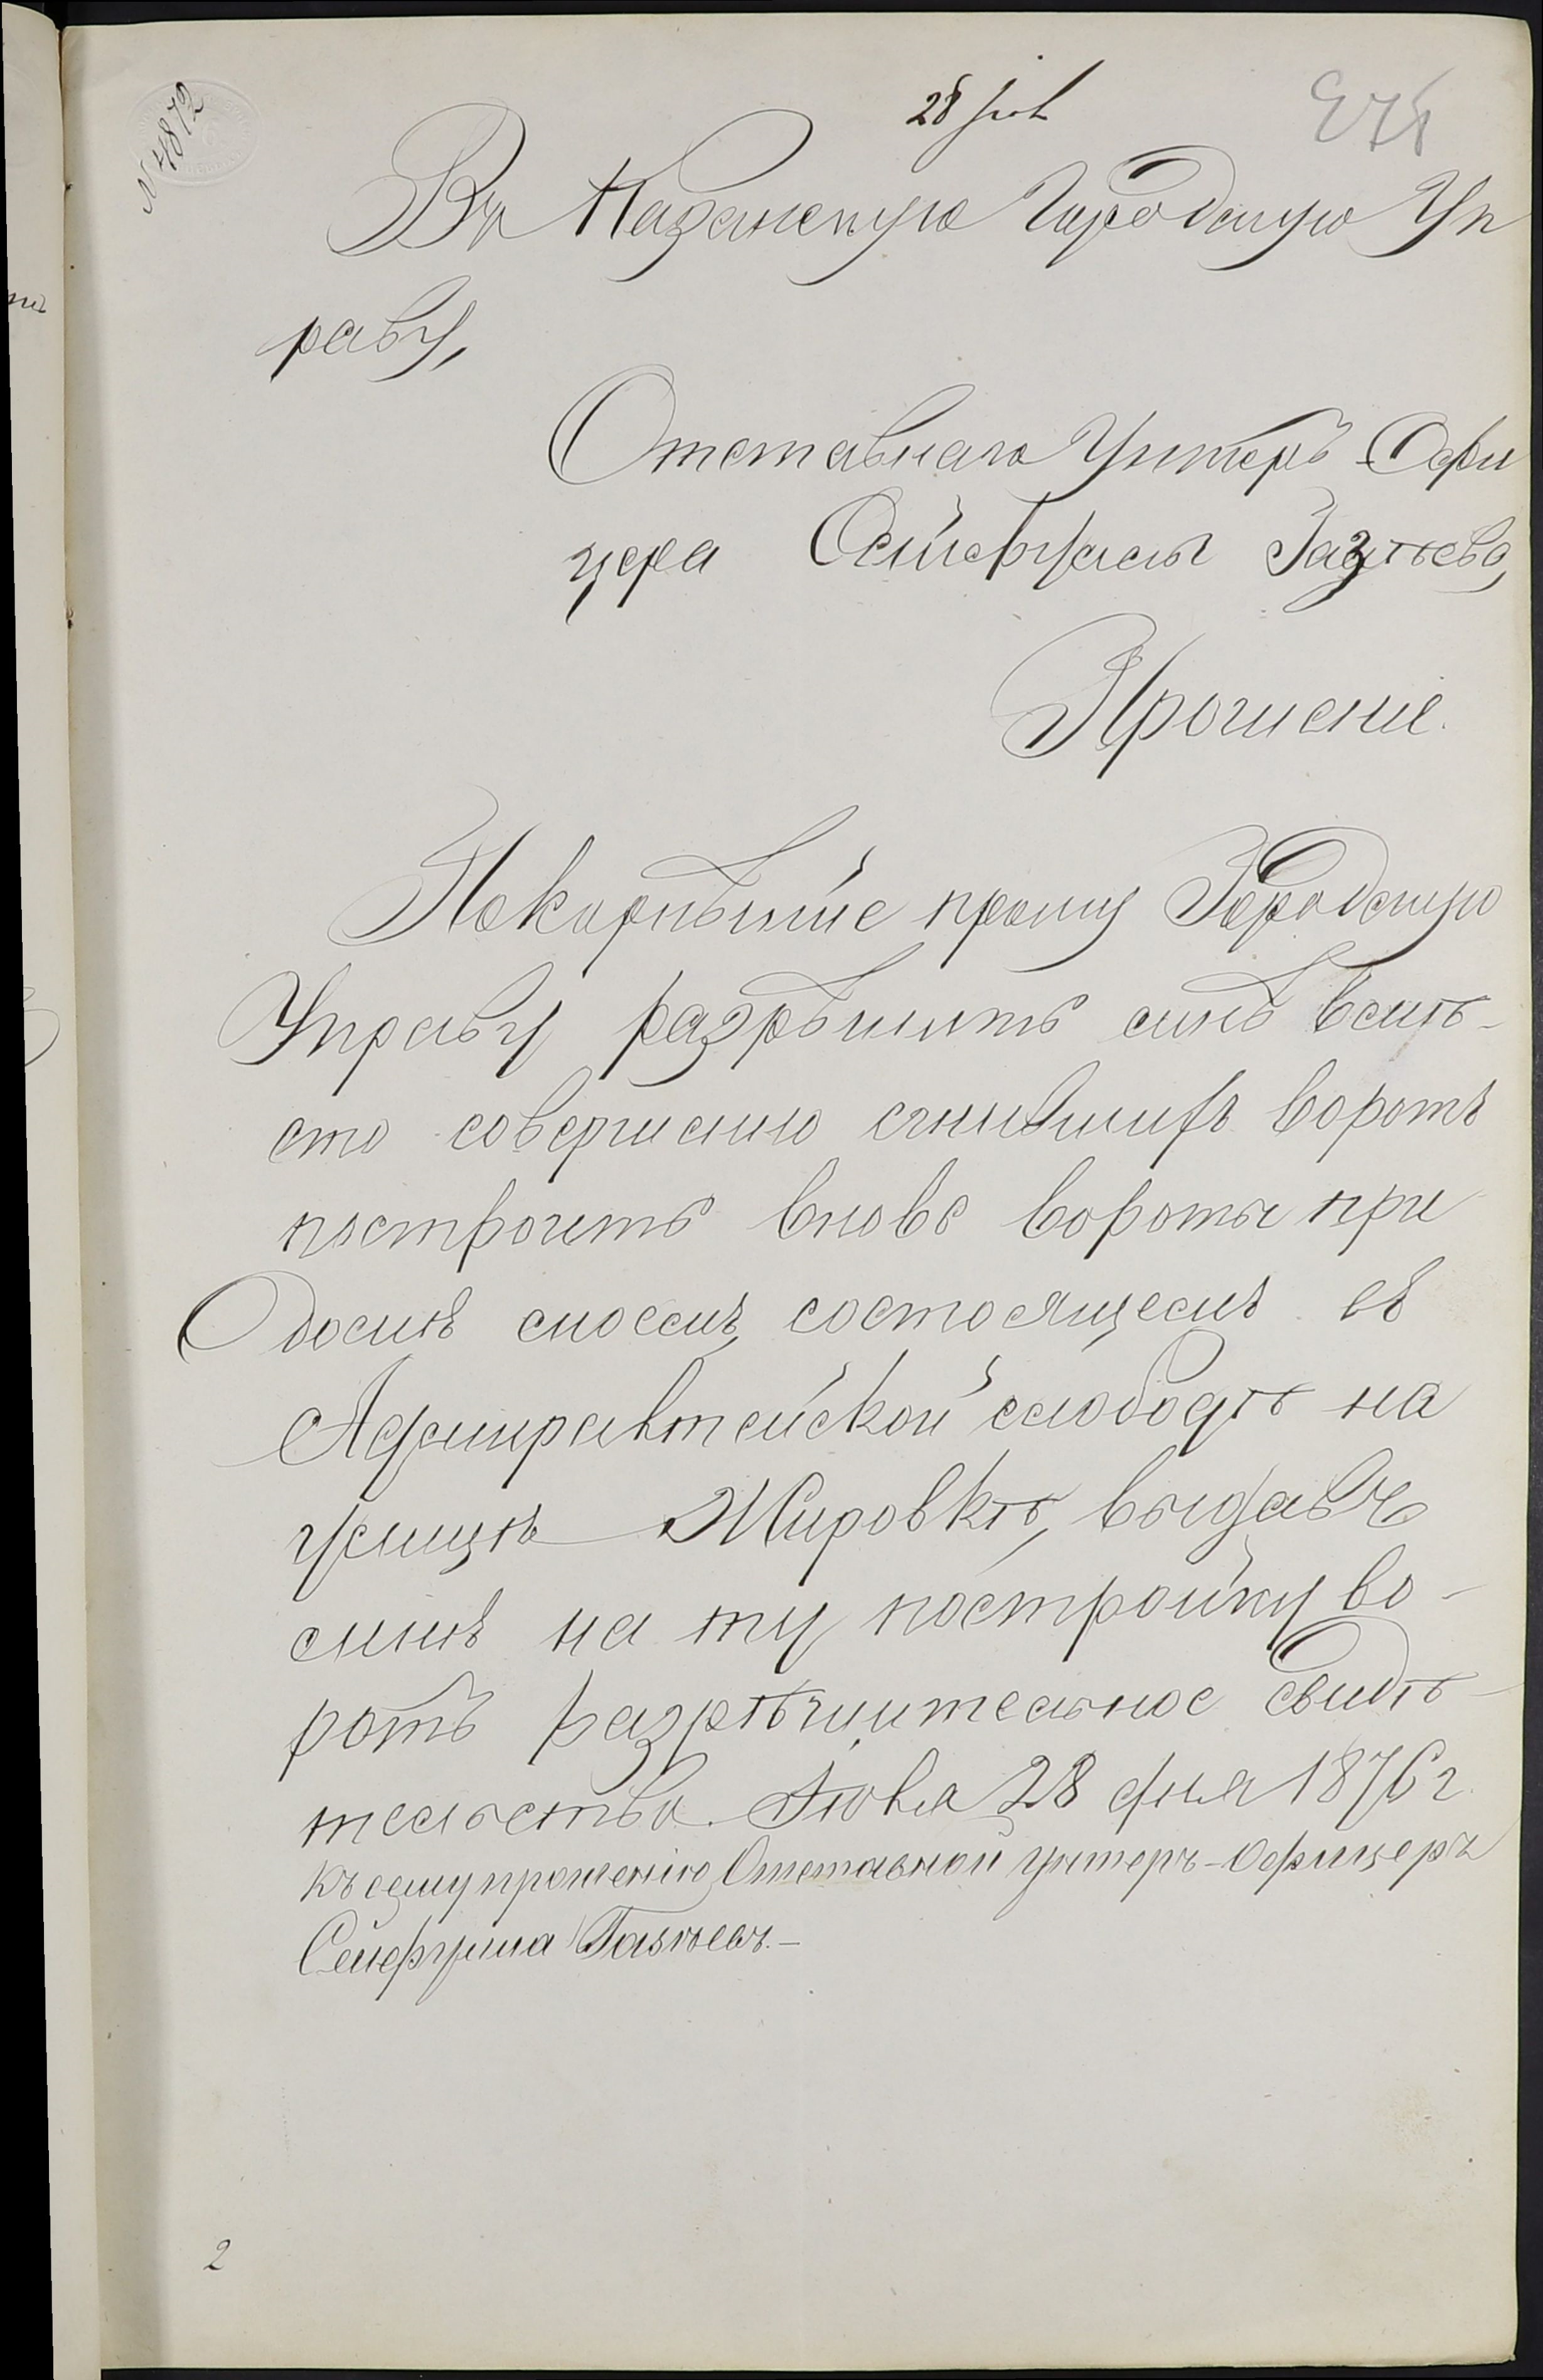 N 4872
28 июл
Въ Казанскую Городскую Уп
раву,
Отставнаго Унтеръ-Офи
цера Сейфулы Газѣева,
Прошеніе.
Покорнѣйше прошу Городскую
Управу разрѣшить мнѣ вмѣ-
сто совершенно сгнившихъ воротъ
построить вновь вороты при
домѣ моемъ, состоящемъ въ
Адмиралтейской слободѣ на
улицѣ Жировкѣ, выдавъ
мнѣ на ту постройку во-
ротъ разрѣшительное свидѣ-
тельство. Июля 28 дня 1876 г.
Къ сему прошенію Отставной унтеръ-Офицеръ
Газѣевъ.-
2